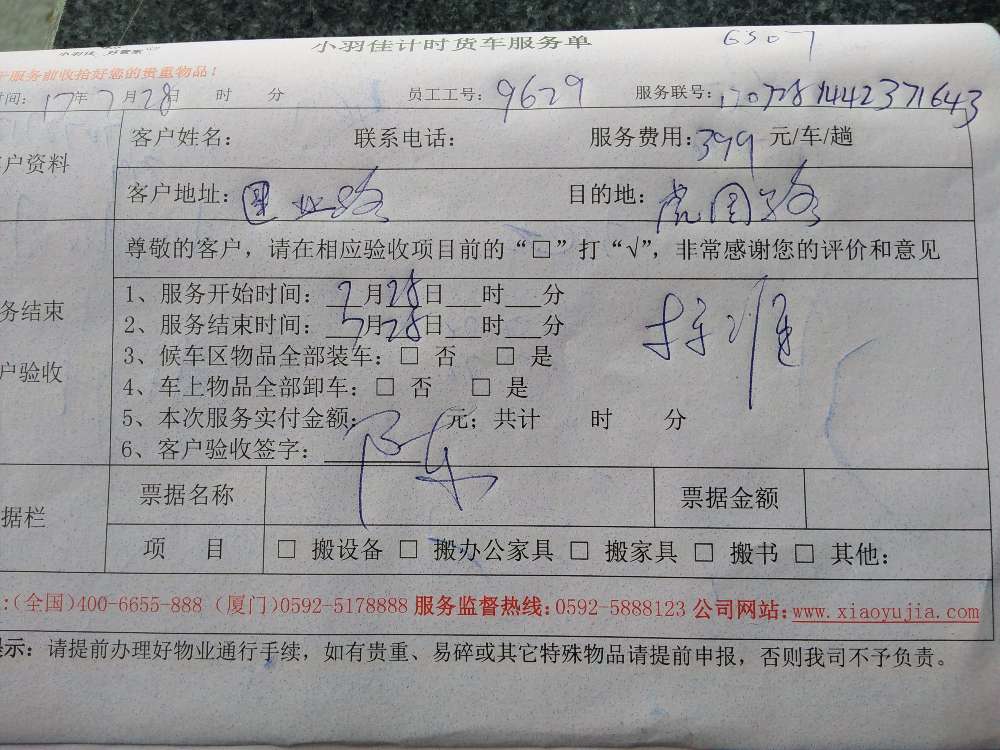 小羽佳计时货车服务单
6507
服务前收拾好您的贵重物品！
时间：17年7月28日 时 分 员工工号：9629 服务联号：1707281442371643
客户资料
客户姓名： 联系电话： 服务费用：399 元/车/趟
客户地址： 目的地：虎园路
尊敬的客户，请在相应验收项目前的“□”打“√”，非常感谢您的评价和意见
务结束
户验收
1、服务开始时间：7月28日 时 分
2、服务结束时间：7月28日 时 分
3、候车区物品全部装车：□ 否 □ 是
4、车上物品全部卸车：□ 否 □ 是
5、本次服务实付金额： 元；共计 时 分
6、客户验收签字：陈
据栏
票据名称 票据金额
项 目 □ 搬设备 □ 搬办公家具 □ 搬家具 □ 搬书 □ 其他：
:(全国)400-6655-888 (厦门)0592-5178888 服务监督热线:0592-5888123 公司网站:www.xiaoyujia.com
提示：请提前办理好物业通行手续，如有贵重、易碎或其它特殊物品请提前申报，否则我司不予负责。